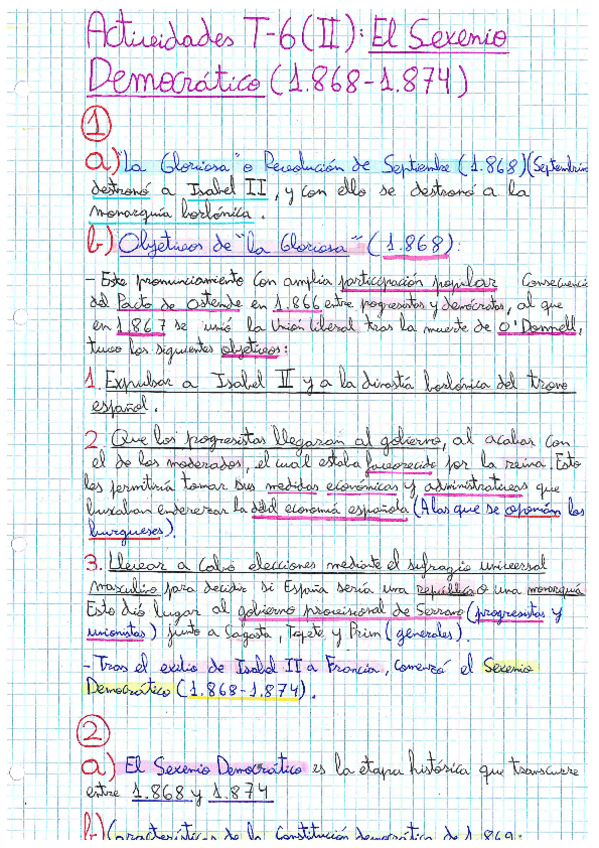 Actividades T-6 (II): El Sexenio
Democrático (1.868-1.874)
1
a) "La Gloriosa" o Revolución de Septiembre (1.868) (Septembrina
destronó a Isabel II, y con ello se destronó a la
monarquía borbónica.
b) Objetivos de "la Gloriosa" (1.868):
- Este pronunciamiento con amplia participación popular Consecuencia
del Pacto de Ostende en 1.866 entre progresistas y demócratas, al que
en 1.867 se unió la Unión Liberal tras la muerte de O'Donnell,
tuvo los siguientes objetivos:
1. Expulsar a Isabel II y a la dinastía borbónica del trono
español.
2. Que los progresistas llegaran al gobierno, al acabar con
el de los moderados, el cual estaba favorecido por la reina. Esto
les permitiría tomar sus medidas económicas y administrativas que
buscaban enderezar la débil economía española (A las que se oponían los
burgueses).
3. Llevar a cabo elecciones mediante el sufragio universal
masculino para decidir si España sería una república o una monarquía
Esto dió lugar al gobierno provisional de Serrano (progresistas y
unionistas) junto a Sagasta, Topete y Prim (generales).
- Tras el exilio de Isabel II a Francia, comenzó el Sexenio
Democrático (1.868-1.874).
2
a) El Sexenio Democrático es la etapa histórica que transcurre
entre 1.868 y 1.874
b) Características de la Constitución democrática de 1.869: